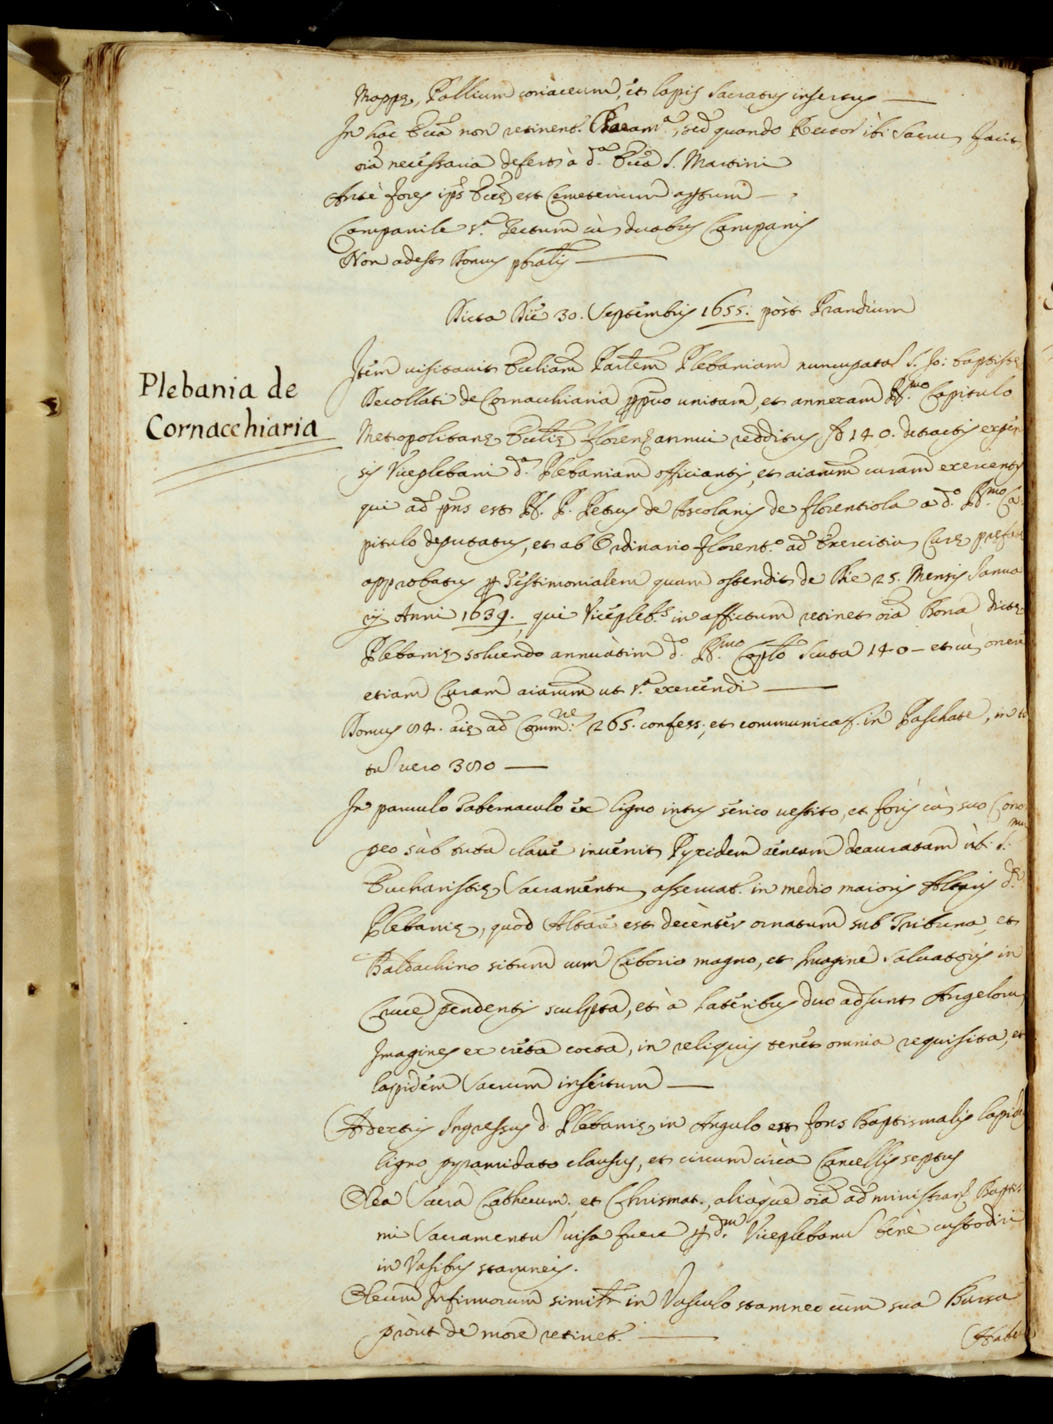 Mappę, Pallium coriaceum, et lapis sacratus insertus —
In hac Eccã non retinent. Param.ª, sed quando Rector ibi sacrũ facit
oĩa necessaria defert à d.ª Eccã S. Martini
Antè fores ips. Eccę est Cemeterium aptum —
Campanile s.ª Tectum cũ duabus Campanis
Non adest Domus pbralis —
Dicta Die 30. Septembris 1655. post Prandium
Plebania de
Cornacchiaria
Item visitavit Eccliam Parlem Plebaniam nuncupatã S. Jo: Baptistę
Decollati de Cornacchiaria ppuo unitam, et annexam Rmo. Capitulo
Metropolitanę Ecclię Florenę annui redditus sc 140. detractis expen
sis Viceplebani d.ª Plebaniam officiantis, et aiarum curam exercentis
qui ad pns est R. P. Petrus de Ascolanis de Florentiola a d.º Rmo. Ca
pitulo deputatus, et ab Ordinario Florent.º ad Exercitiũ Curę prefatę
approbatus p Testimonialem quam ostendit de Die 25. Mensis Janua
rij Anni 1639. qui Vicepleb.s in affictum retinet oĩa Bona dictę
Plebanię solvendo annuatim d.º Rmo Caplo Scuta 140 — et cũ onere
etiam Curam aiarum ut s.ª exercendi —
Domus 84. aię ad Comm.ne 265. confess. et communicaſ. in Paschate, in to
tũ vero 380 —
In parvulo Tabernaculo ex ligno intus serico vestito, et foris cũ suo Cono
peo sub tuta clave invenit Pyxidem ęneam deauratam ubi S.mũ
Eucharistię Sacramentũ asservat. in medio maioris Altaris d.ę
Plebanię, quod Altare est decenter ornatum sub Tribuna, et
Baldachino situm cum Ciborio magno, et Imagine Salvatoris in
Cruce pendentis sculpta, et à lateribus duo adsunt Angelorũ
Imagines ex creta cocta, in reliquis tenet omnia requisita, et
lapidem sacrum insertum —
A dextris Ingressus d. Plebanię in Angulo est fons Baptismalis lapid.
ligno pyramidato clausus, et circum circa Cancellis septus
Olea Sacra Cathecum. et Chrismat., aliaque oĩa ad ministranſ. Baptis
mi Sacramentũ visa fuere p d.m Viceplebanũ bene custodiri
in Vasibus stamneis.
Oleum Infirmorum similtr in Vasculo stamneo cum sua Bursa
prout de more retinet. —
Habe